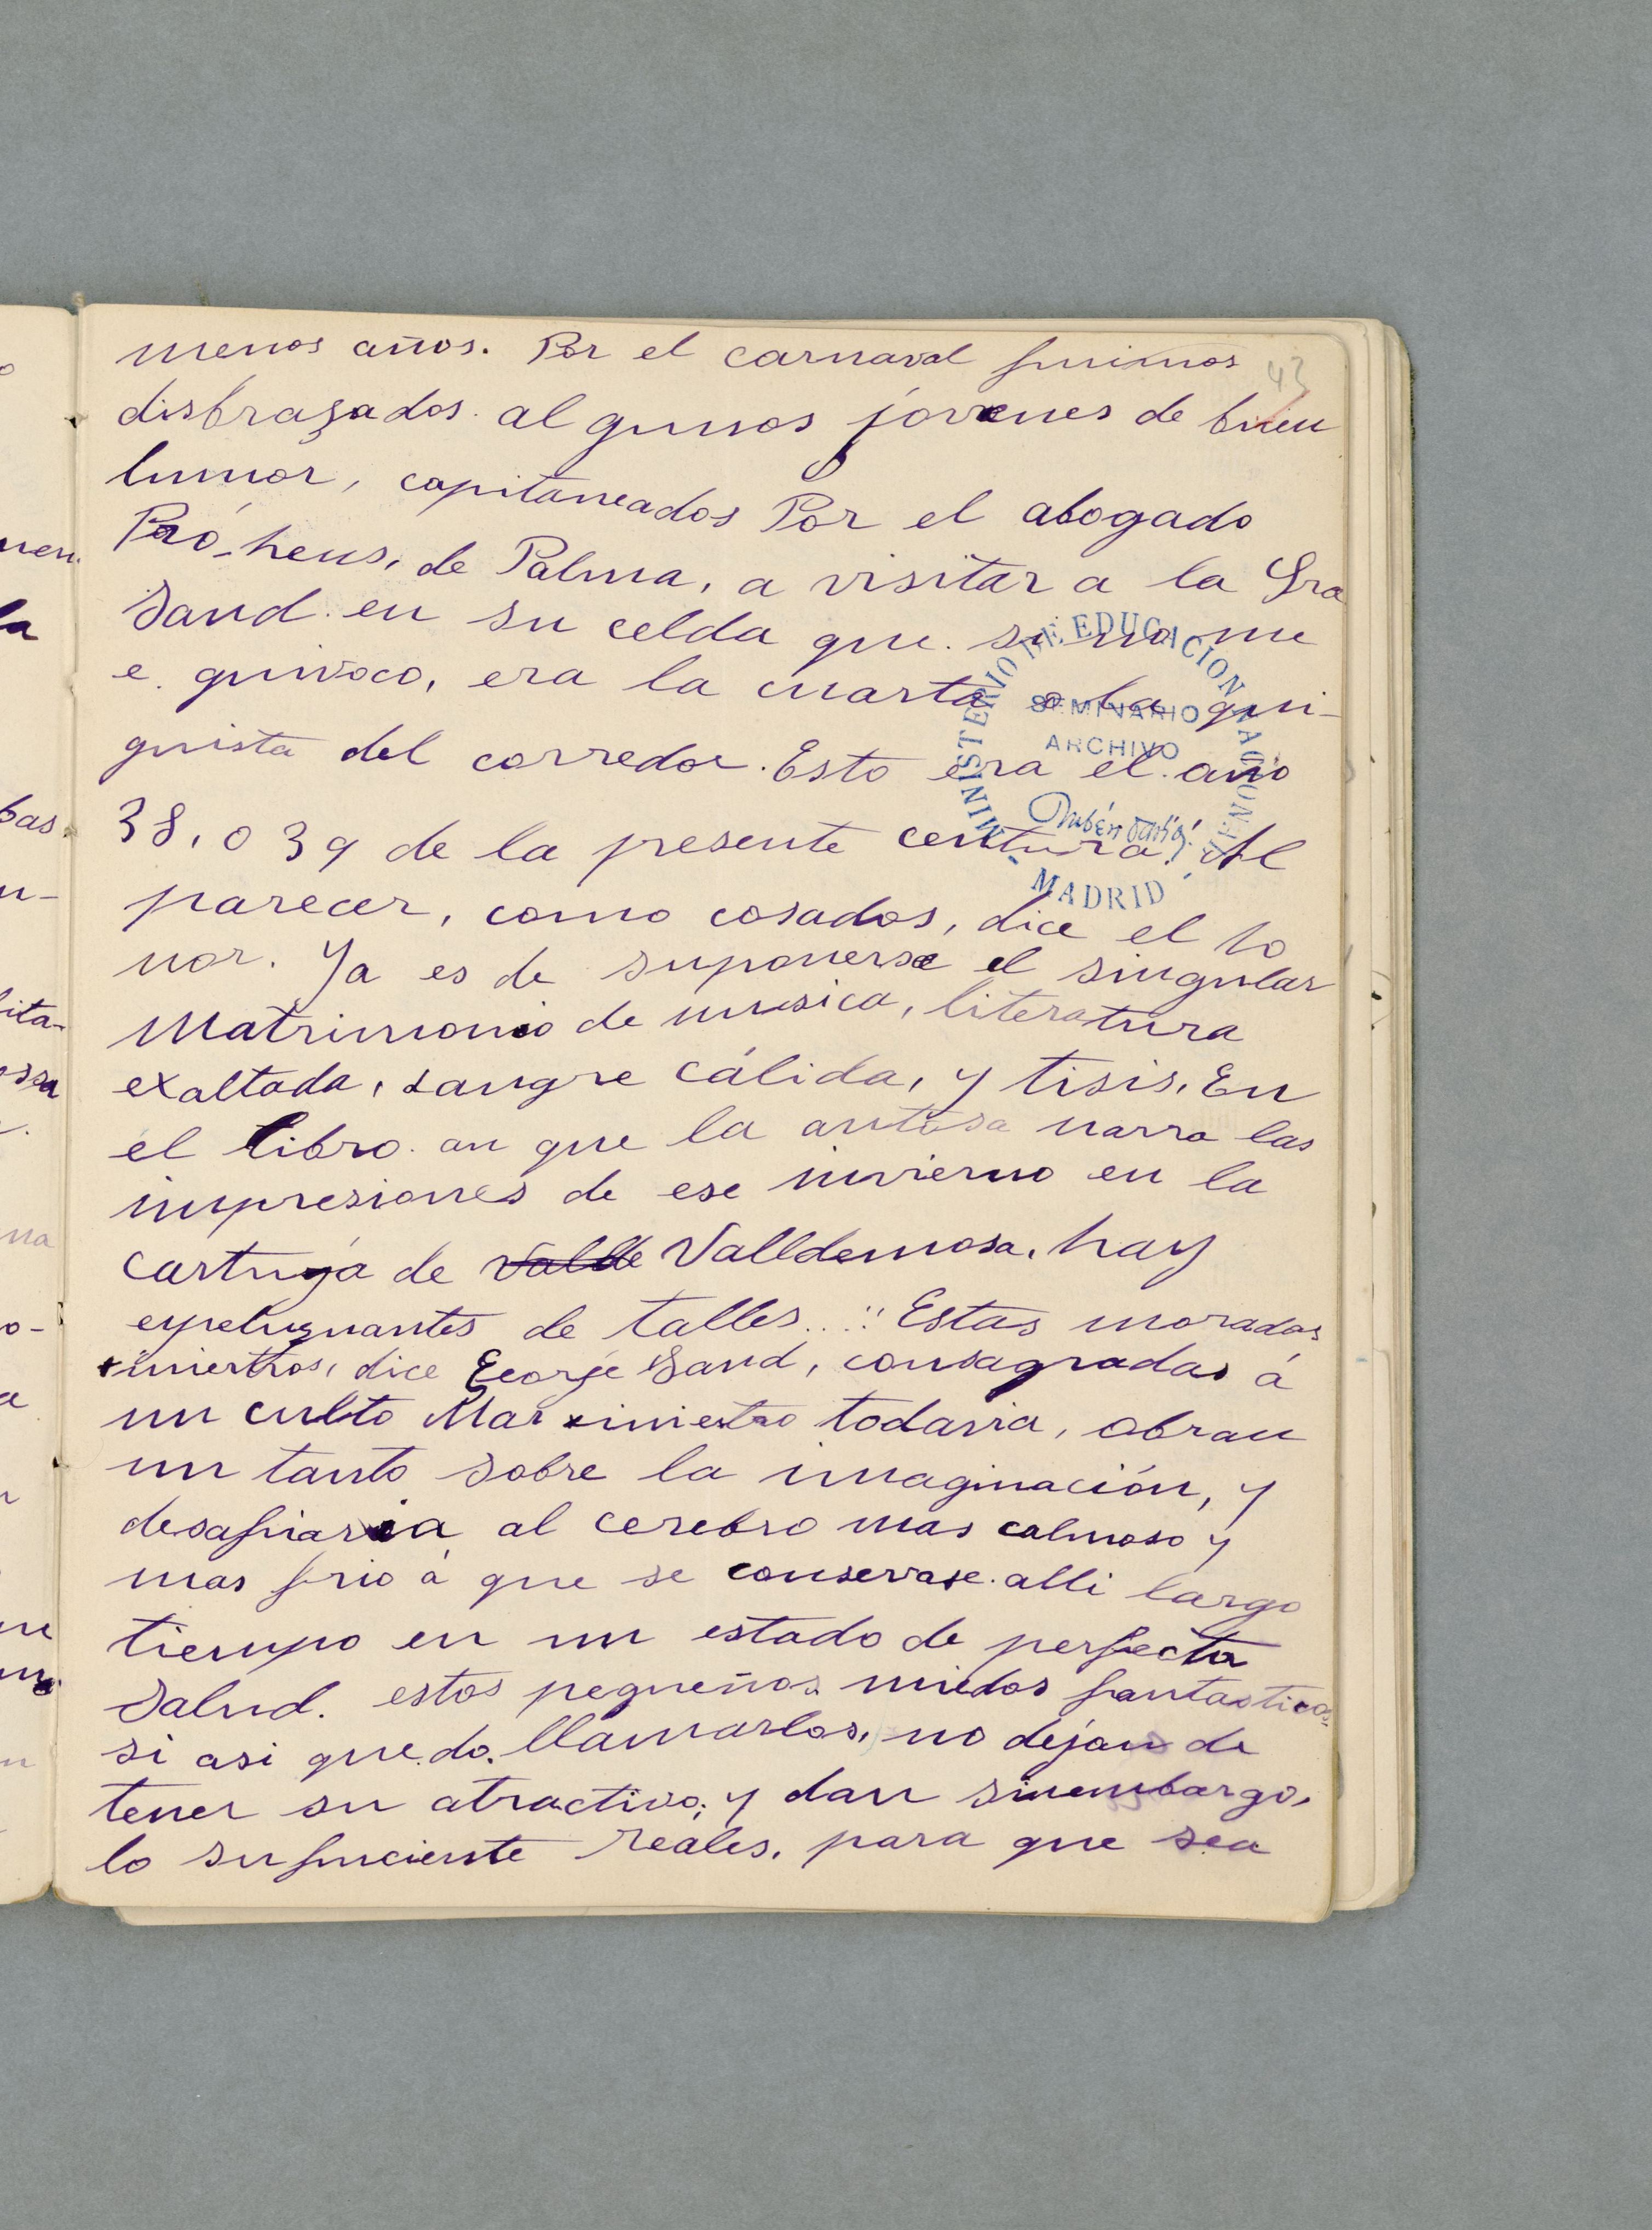 menos años. Por el carnaval fuimos
43
disbrazados. algunos jovenes de buen
humor, capitaneados Por el abogado
Pró-hens, de Palma, a visitar a la Sra
Sand. en su celda que. si no me
e. quivoco, era la cuarta o la qui-
guista del corredor. Esto era el. año
38, o 39 de la presente centura. Al
parecer, como casados, dice el so
nor. Ya es de suponerse el singular
Matrimonio de musica, literatura
exaltada, sangre cálida, y tisis. En
el libro. an que la autosa narra las
impresiones de ese invierno en la
cartuja de Valde Valldemosa. hay
de talles... "Estas moradas
siniestros, dice George Sand, consagradas á
un culto Mar siniestro todavia, obran
un tanto sobre la imaginación, y
desafiaria al cerebro mas calmoso y
mas frio á que se conservase. alli largo
tiempo en un estado de perfecta
Salud. estos pequeños miedos fantasticos
si asi que.do. llamarlos, no dejan de
tener su atractivo; y dan sinembargo,
lo sufuciente reales. para que sea
MINISTERIO DE EDUCACION NACIONAL
SEMINARIO
ARCHIVO
Rubén Darío
- MADRID -